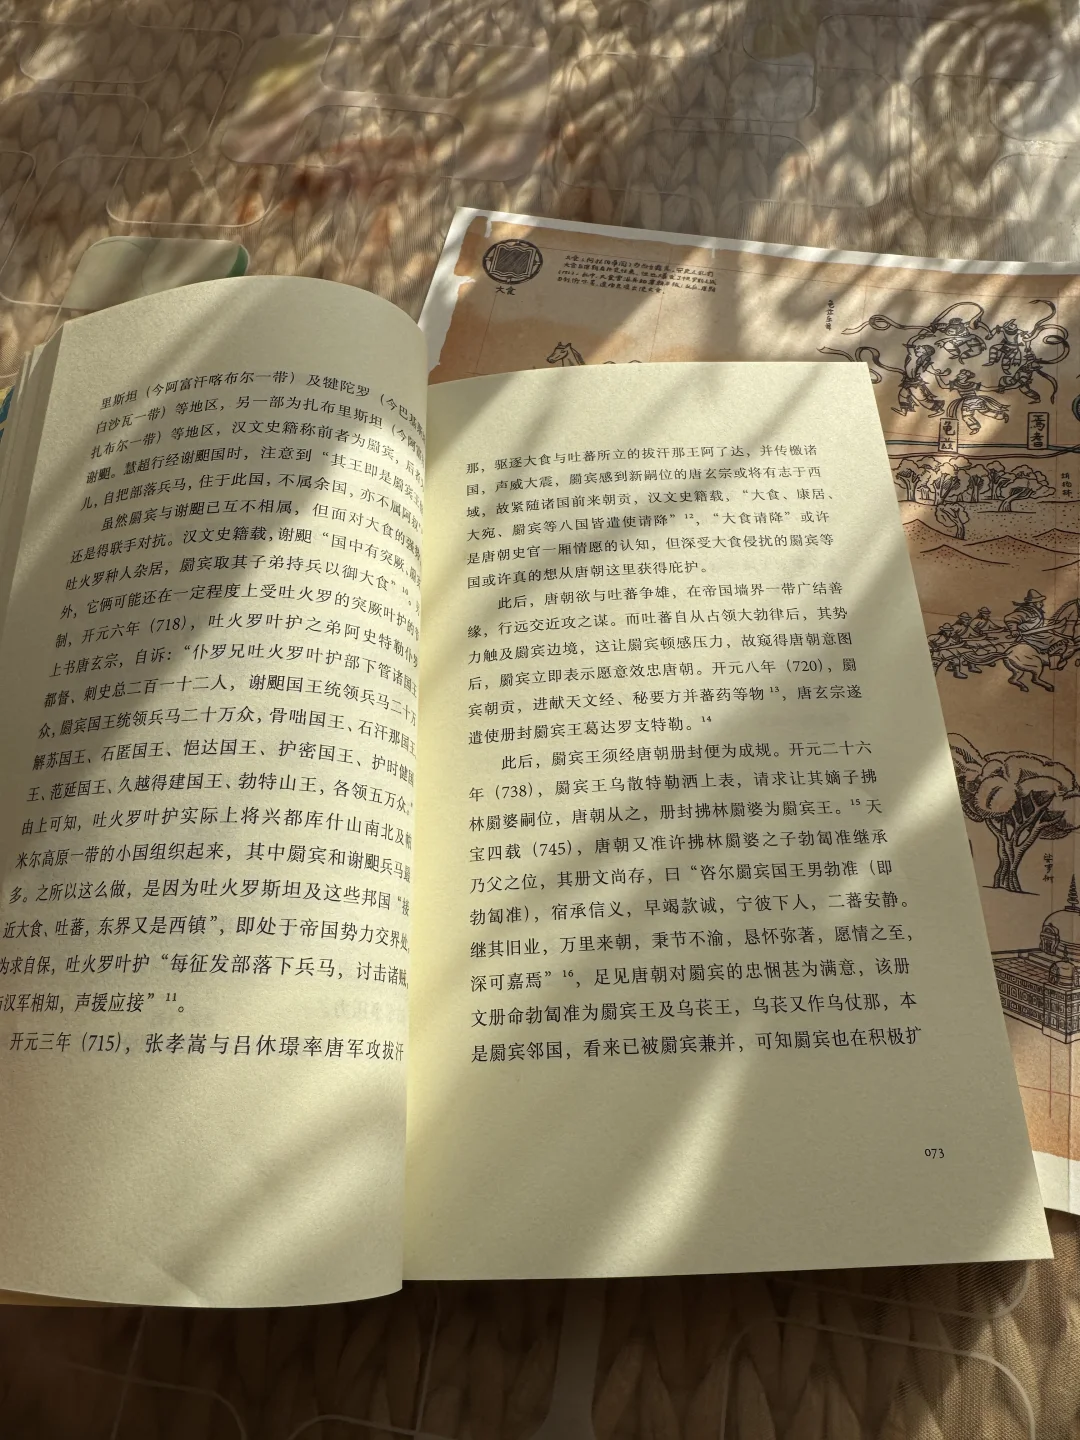 里斯坦（今阿富汗喀布尔一带）及犍陀罗（今巴基斯
白沙瓦一带）等地区，另一部为扎布里斯坦（今阿富
扎布尔一带）等地区，汉文史籍称前者为罽宾，后者
谢䫻。慧超行经谢䫻国时，注意到“其王即是罽宾王
儿，自把部落兵马，住于此国，不属余国，亦不属阿叔”
虽然罽宾与谢䫻已互不相属，但面对大食的强势
还是得联手对抗。汉文史籍载，谢䫻“国中有突厥、罽宾
吐火罗种人杂居，罽宾取其子弟持兵以御大食”¹⁰。
外，它俩可能还在一定程度上受吐火罗的突厥叶护的
制，开元六年（718），吐火罗叶护之弟阿史特勒仆罗
上书唐玄宗，自诉：“仆罗兄吐火罗叶护部下管诸国王
都督、刺史总二百一十二人，谢䫻国王统领兵马二十万
众，罽宾国王统领兵马二十万众，骨咄国王、石汗那国王
解苏国王、石匿国王、悒达国王、护密国王、护时健国
王、范延国王、久越得建国王、勃特山王，各领五万众。”
由上可知，吐火罗叶护实际上将兴都库什山南北及帕
米尔高原一带的小国组织起来，其中罽宾和谢䫻兵马最
多。之所以这么做，是因为吐火罗斯坦及这些邦国“接
近大食、吐蕃，东界又是西镇”，即处于帝国势力交界处，
为求自保，吐火罗叶护“每征发部落下兵马，讨击诸贼，
与汉军相知，声援应接”¹¹。
开元三年（715），张孝嵩与吕休璟率唐军攻拔汗
那，驱逐大食与吐蕃所立的拔汗那王阿了达，并传檄诸
国，声威大震，罽宾感到新嗣位的唐玄宗或将有志于西
域，故紧随诸国前来朝贡，汉文史籍载，“大食、康居、
大宛、罽宾等八国皆遣使请降”¹²，“大食请降”或许
是唐朝史官一厢情愿的认知，但深受大食侵扰的罽宾等
国或许真的想从唐朝这里获得庇护。
此后，唐朝欲与吐蕃争雄，在帝国墙界一带广结善
缘，行远交近攻之谋。而吐蕃自从占领大勃律后，其势
力触及罽宾边境，这让罽宾顿感压力，故窥得唐朝意图
后，罽宾立即表示愿意效忠唐朝。开元八年（720），罽
宾朝贡，进献天文经、秘要方并蕃药等物¹³，唐玄宗遂
遣使册封罽宾王葛达罗支特勒。¹⁴
此后，罽宾王须经唐朝册封便为成规。开元二十六
年（738），罽宾王乌散特勒洒上表，请求让其嫡子拂
林罽婆嗣位，唐朝从之，册封拂林罽婆为罽宾王。¹⁵天
宝四载（745），唐朝又准许拂林罽婆之子勃匐准继承
乃父之位，其册文尚存，曰“咨尔罽宾国王男勃准（即
勃匐准），宿承信义，早竭款诚，宁彼下人，二蕃安静。
继其旧业，万里来朝，秉节不渝，恳怀弥著，愿情之至，
深可嘉焉”¹⁶，足见唐朝对罽宾的忠悃甚为满意，该册
文册命勃匐准为罽宾王及乌苌王，乌苌又作乌仗那，本
是罽宾邻国，看来已被罽宾兼并，可知罽宾也在积极扩
073
大食
龟兹乐舞
龟兹
焉耆